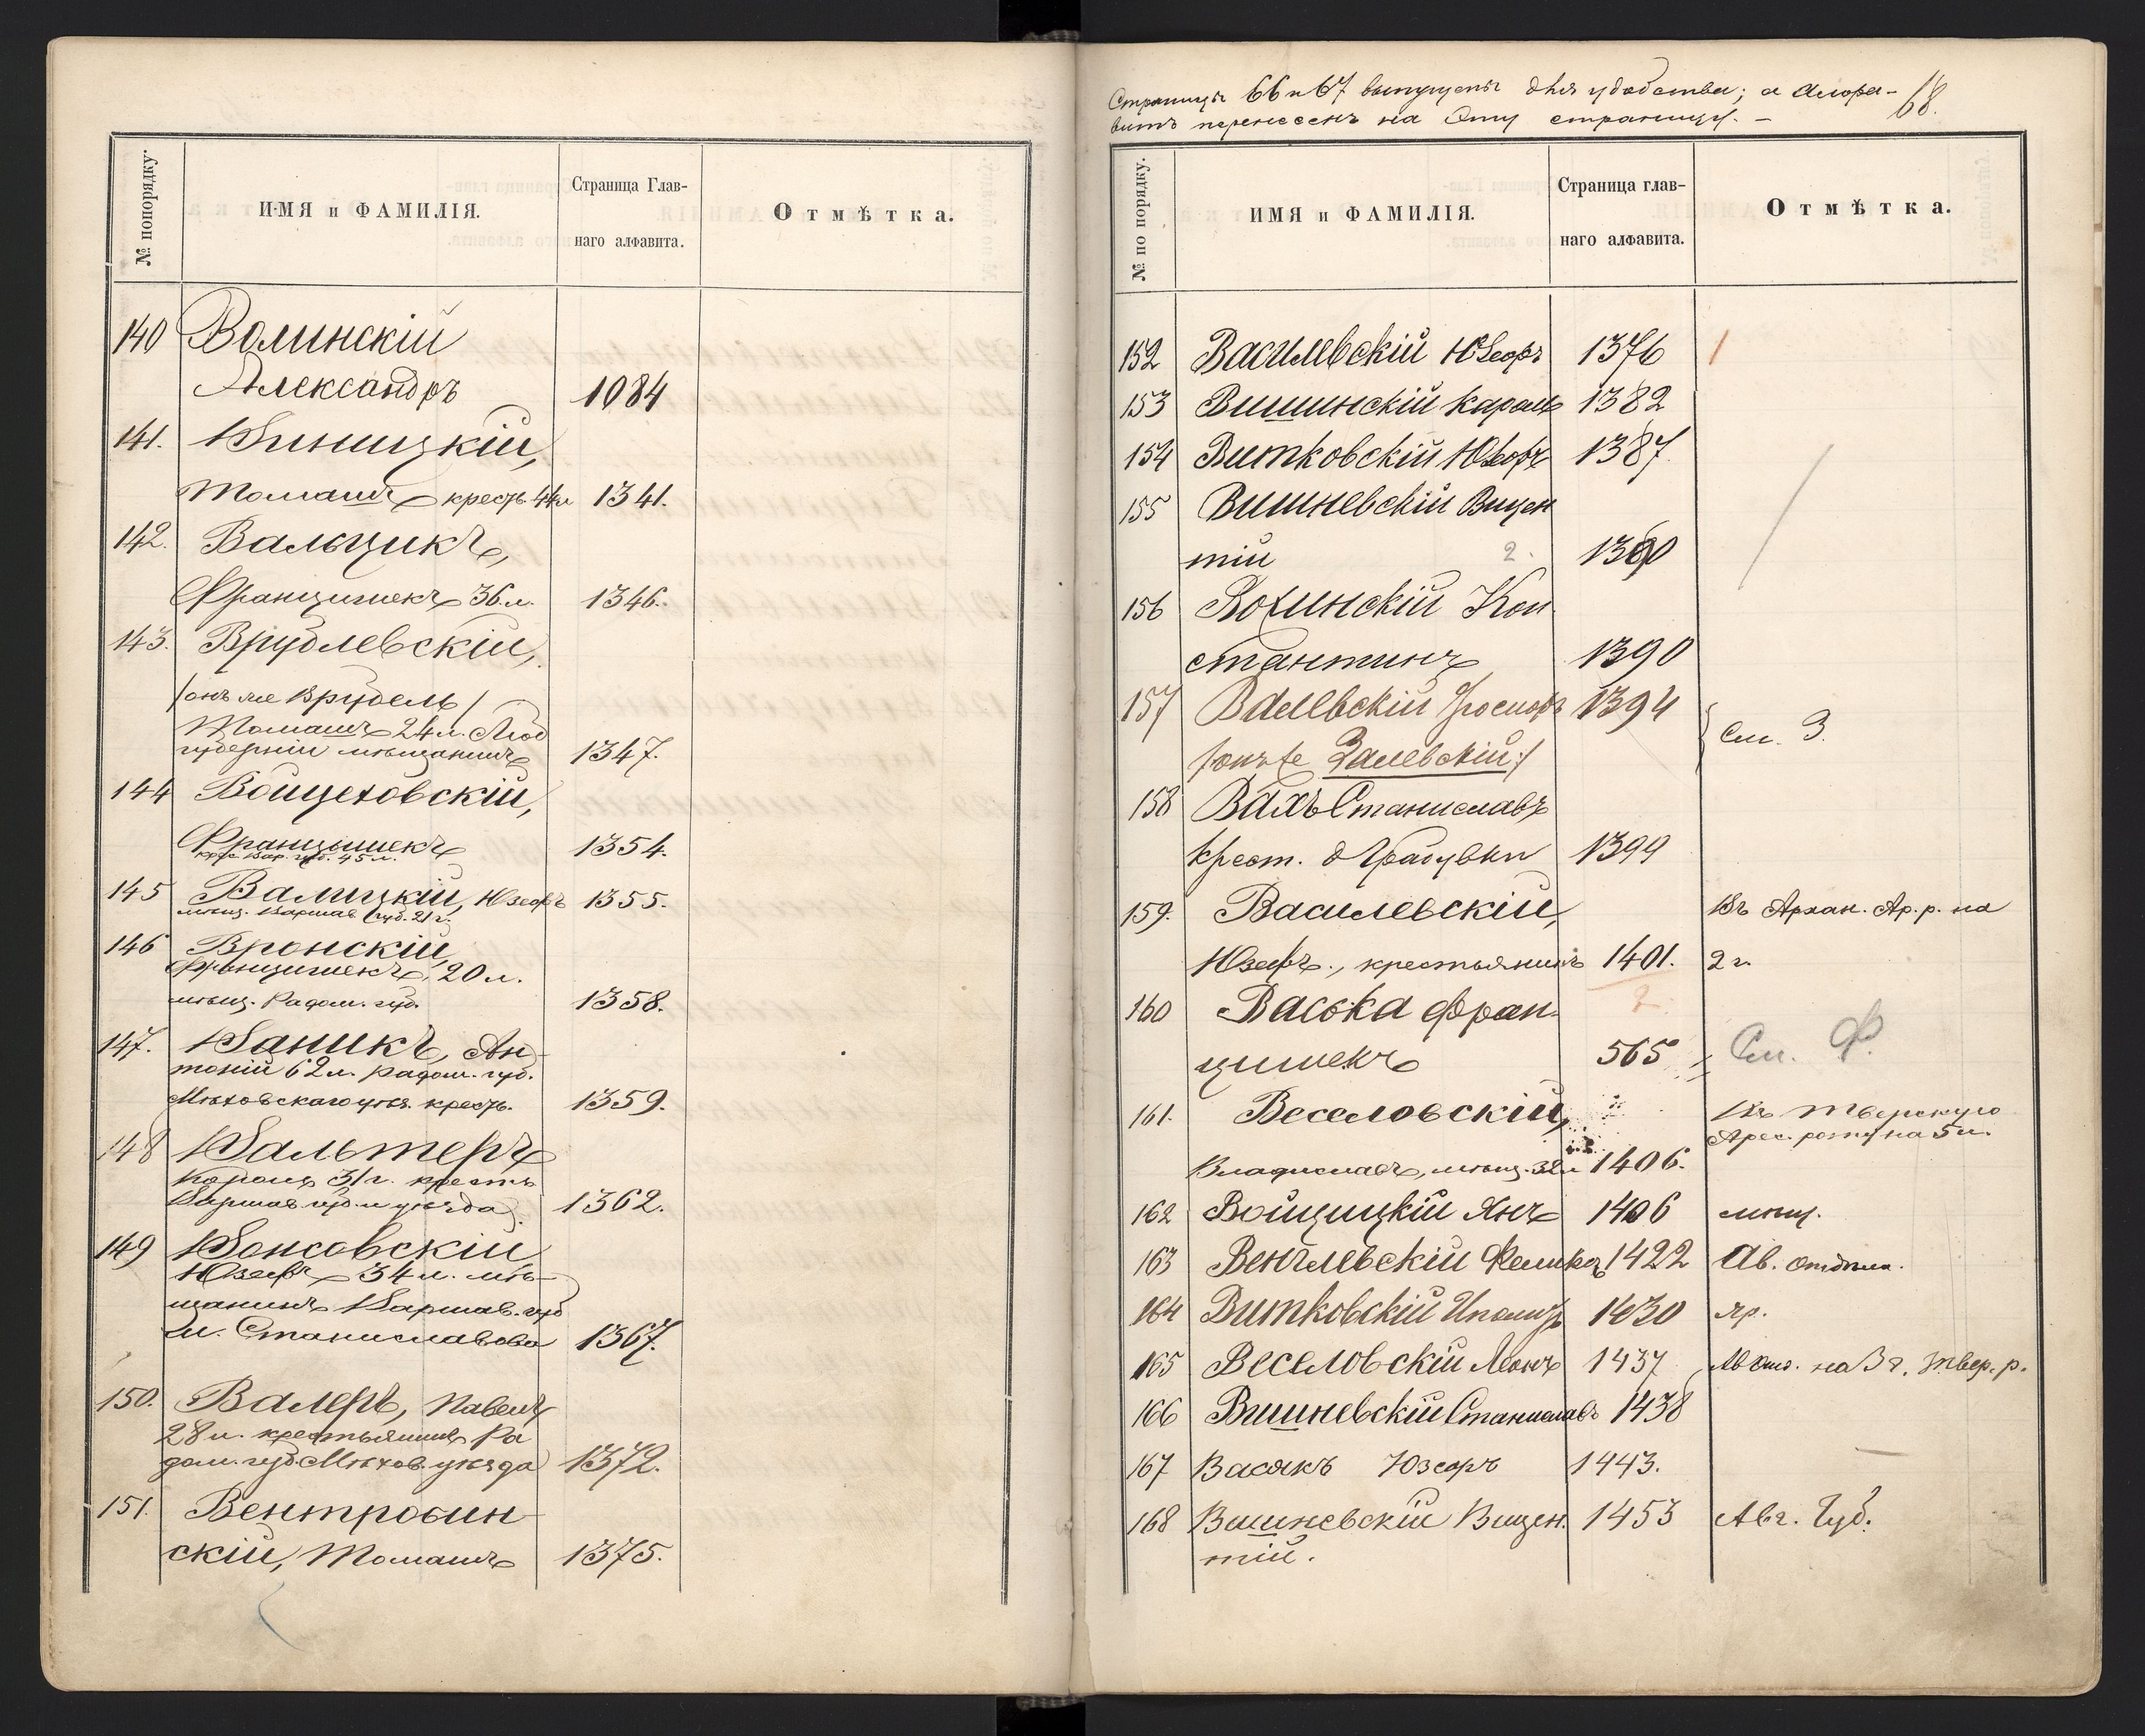 № попорядку.
ИМЯ и ФАМИЛІЯ.
Страница Глав-
наго алфавита.
Отмѣтка.
140 Волинскій
Александръ 1084
141. Виницкій,
Томашъ крест. 44 л 1341.
142. Вальчикъ,
Францишекъ 36 л. 1346.
143. Врублевскій,
/онъ же Врубель/
Томашъ 24 л. Люб
губерніи мѣщанинъ 1347.
144 Войцеховскій,
Францишекъ 1354.
крес. Вар. губ. 45 л.
145 Валицкій, Юзефъ 1355.
мѣщ. Варшав губ. 21 г.
146 Вронскій,
Францишекъ, 20 л.
мѣщ. Радом. губ. 1358.
147. Ваникъ, Ан-
тоній 62 л. Радом. губ.
Мѣховскаго уѣз. крест. 1359.
148 Вальтеръ
Кароль 31 г. крестъ
Варшав губ. и уѣзда. 1362.
149 Вонсовскій
Юзефъ 34 л. мѣ-
щанинъ Варшав. губ
м. Станиславова 1367.
150. Валеръ, Павелъ
28 л. крестьянинъ Ра
дом. губ. Мѣхов. уѣзда 1372.
151. Вентробин
скій, Томашъ 1375.
Страницы 66 и 67 выпущены для удобства; а алфа-
витъ перенесенъ на эту страницу. –
68.
№ по порядку.
ИМЯ и ФАМИЛІЯ.
Страница глав-
наго алфавита.
Отмѣтка.
152 Василевскій Юзефъ 1376
153 Вишинскій Кароль 1382
154 Витковскій Юзефъ 1387.
155 Вишневскій Вицен
тій 2. 1390
156 Вохинскій Кон
стантинъ 1390
157 Валевскій 1394
/онъ же Залевскій/ См. З.
158 Вахъ Станиславъ
крест. д 1399
159. Василевскій, Въ Архан. Ар. р. на
Юзефъ, крестьянинъ 1401. 2 г.
160 Васька Фран-
цишекъ 565 См. Ф.
161. Веселовскій, Въ Тверскую
Арес. роту на 5 л.
Владиславъ, мѣщ. 32 л 1406.
162 Войцицкій Янъ 1406 мѣщ.
163 Венглевскій Феликсъ 1422 Ав. отдѣл.
164 Витковскій Иполитъ 1430 яр.
165 Веселовскій Леонъ 1437 на 3 г. Твер. р.
166 Вишневскій Станиславъ 1438
167 Васякъ Юзефъ 1443.
168 Вишневскій Вицен. 1453 Авг. Губ.
тій.